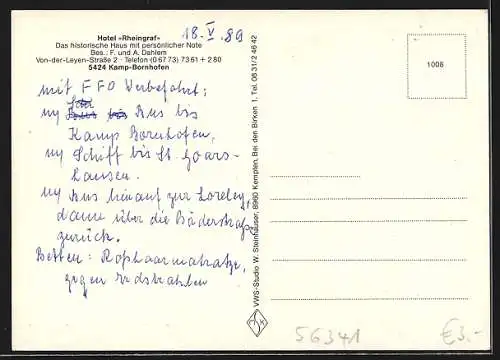 Hotel »Rheingraf«
Das historische Haus mit persönlicher Note
Bes.: F. und A. Dahlem
Von-der-Leyen-Straße 2 · Telefon (0 67 73) 73 61 + 2 80
5424 Kamp-Bornhofen
18. V. 89
mit FFO Werbefahrt:
Bus bis
Kamp Bornhofen,
Schiff bis St. Goars-
hausen.
Bus hinauf zur Loreley,
dann über die Bäderstraße
zurück.
Betten: Roßhaarmatratze,
gegen Erdstrahlen
VWS-Studio W. Steinhäuser, 8960 Kempten, Bei den Birken 1, Tel. 08 31/2 46 42
1008
56341
€3.-